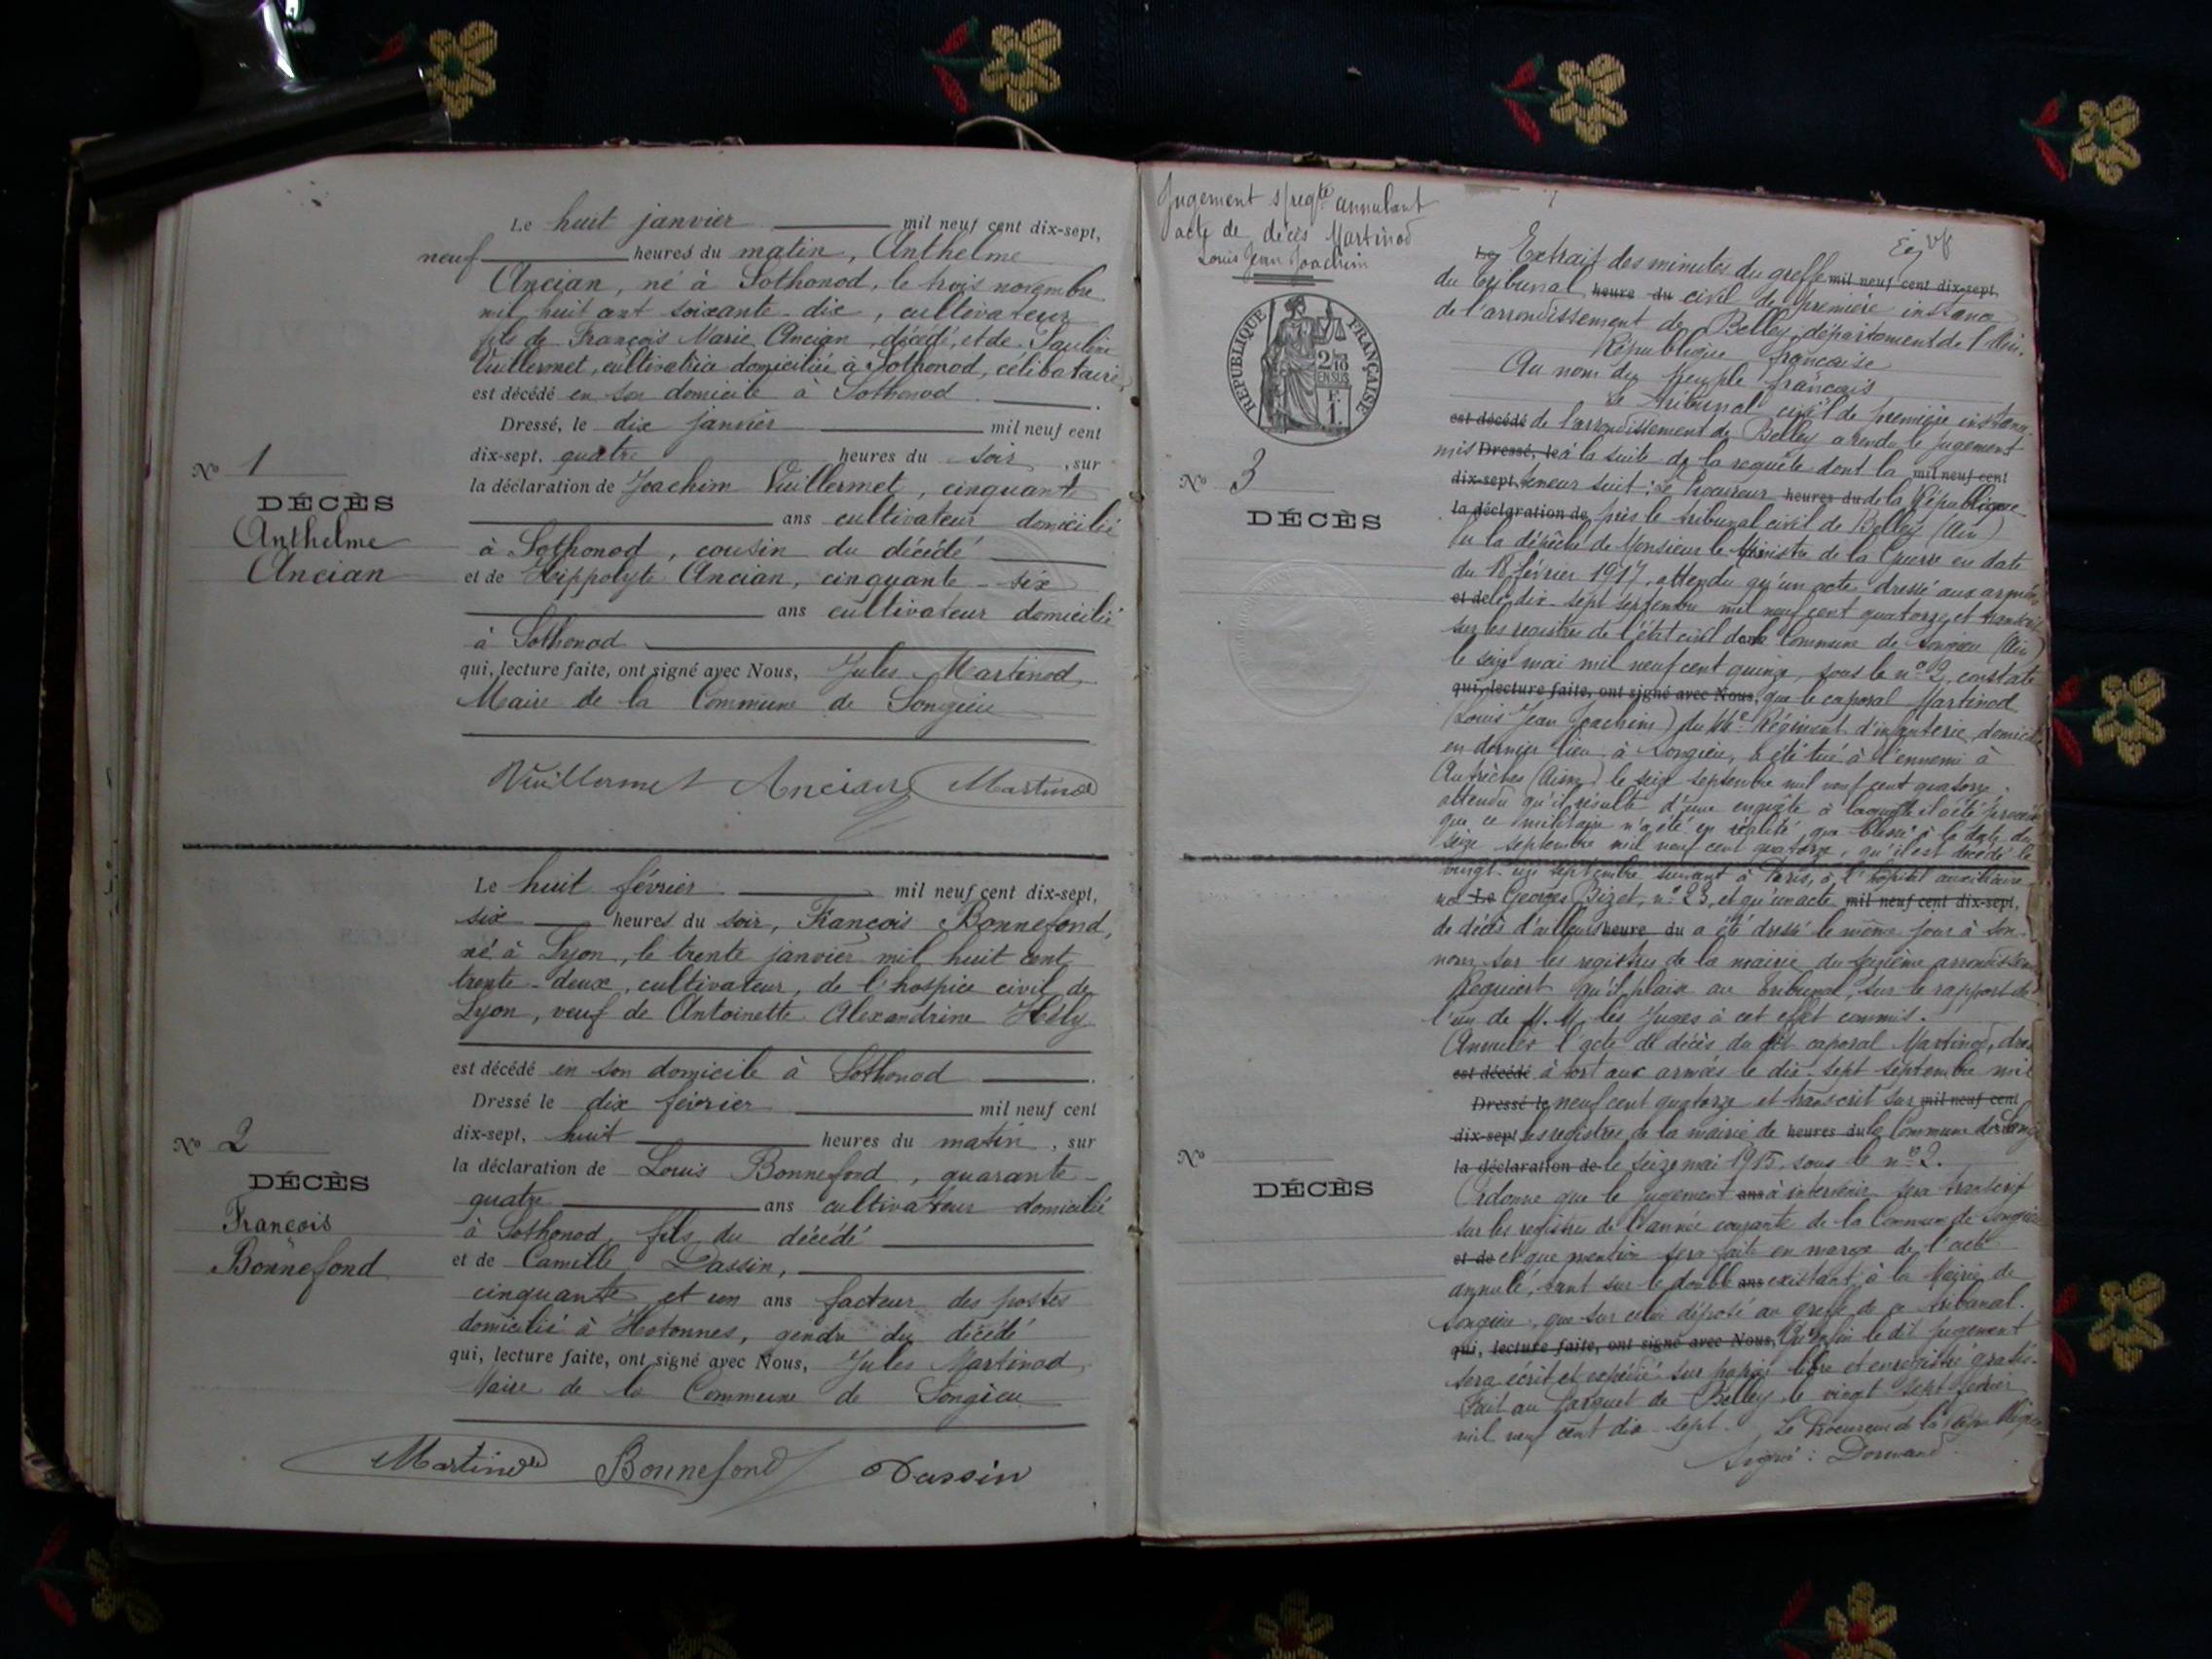 Le huit janvier mil neuf cent dix-sept,
neuf heures du matin, Anthelme
Ancian, né à Sothonod, le trois novembre
mil huit cent soixante-dix, cultivateur
fils de François Marie Ancian, décédé, et de Pauline
Vuillermet, cultivatrice domiciliée à Sothonod, célibataire
est décédé en son domicile à Sothonod.
Dressé, le dix janvier mil neuf cent
dix-sept, quatre heures du soir, sur
la déclaration de Joachim Vuillermet, cinquante
ans cultivateur domicilié
à Sothonod, cousin du décédé
et de Hippolyte Ancian, cinquante-six
ans cultivateur domicilié
à Sothonod
qui, lecture faite, ont signé avec Nous, Jules Martinod,
Maire de la Commune de Songieu
Vuillermet Ancian Martinod
No 1
DÉCÈS
Anthelme
Ancian
Le huit février mil neuf cent dix-sept,
six heures du soir, François Bonnefond,
né à Lyon, le trente janvier mil huit cent
trente-deux, cultivateur, de l'hospice civil de
Lyon, veuf de Antoinette Alexandrine Hély
est décédé en son domicile à Sothonod.
Dressé le dix février mil neuf cent
dix-sept, huit heures du matin, sur
la déclaration de Louis Bonnefond, quarante-
quatre ans cultivateur domicilié
à Sothonod, fils du décédé
et de Camille Dassin,
cinquante et un ans facteur des postes
domicilié à Hotonnes, gendre du décédé
qui, lecture faite, ont signé avec Nous, Jules Martinod,
Maire de la Commune de Songieu
Martinod Bonnefond Dassin
No 2
DÉCÈS
François
Bonnefond
Jugement s/reqte annulant
acte de décès Martinod
Louis Jean Joachim
RÉPUBLIQUE FRANÇAISE
2/10 EN SUS
F. 1.
No 3
DÉCÈS
Le Extrait des minutes du greffe mil neuf cent dix-sept,
du tribunal heure du civil de première instance
de l'arrondissement de Belley, département de l'Ain.
République française
Au nom du peuple français
Le tribunal civil de première instance
est décédé de l'arrondissement de Belley a rendu le jugement
mis Dressé, le à la suite de la requête dont la mil neuf cent
dix-sept, teneur suit : Le Procureur heures du de la République
la déclaration de près le tribunal civil de Belley (Ain)
Vu la dépêche de Monsieur le Ministre de la Guerre en date
du 18 février 1917, attendu qu'un acte dressé aux armées
et de le dix-sept septembre mil neuf cent quatorze, et transcrit
sur les registres de l'état civil de la Commune de Songieu (Ain)
le seize mai mil neuf cent quinze, sous le no 2, constate
qui, lecture faite, ont signé avec Nous, que le caporal Martinod
(Louis Jean Joachim) du Régiment d'infanterie, domicilié
en dernier lieu à Songieu, a été tué à l'ennemi à
Autrèches (Aisne) le seize septembre mil neuf cent quatorze.
attendu qu'il résulte d'une enquête à laquelle il a été procédé
que ce militaire n'a été en réalité que blessé à la date du
seize septembre mil neuf cent quatorze, qu'il est décédé le
vingt-un septembre suivant à Paris, à l'hôpital auxiliaire
rue Le Georges Bizet, no 23, et qu'un acte mil neuf cent dix-sept,
de décès d'ailleurs heure du a été dressé le même jour à son
nom sur les registres de la mairie du seizième arrondissement
Requiert qu'il plaise au tribunal, sur le rapport de
l'un de M.M. les Juges à cet effet commis.
Annuler l'acte de décès du dit caporal Martinod, dressé
est décédé à tort aux armées le dix-sept septembre mil
Dressé le neuf cent quatorze et transcrit sur mil neuf cent
dix-sept les registres de la mairie de heures du la Commune de Songieu
la déclaration de le seize mai 1915, sous le no 2.
Ordonne que le jugement ans à intervenir sera transcrit
sur les registres de l'année courante de la Commune de Songieu
et de et que mention sera faite en marge de l'acte
annulé, tant sur le double ans existant à la Mairie de
Songieu, que sur celui déposé au greffe de ce tribunal.
qui, lecture faite, ont signé avec Nous, Qu'enfin le dit jugement
sera écrit et expédié sur papier libre et enregistré gratis.
Fait au Parquet de Belley, le vingt-sept février
mil neuf cent dix-sept. Le Procureur de la République
Signé : Dormand.
No
DÉCÈS